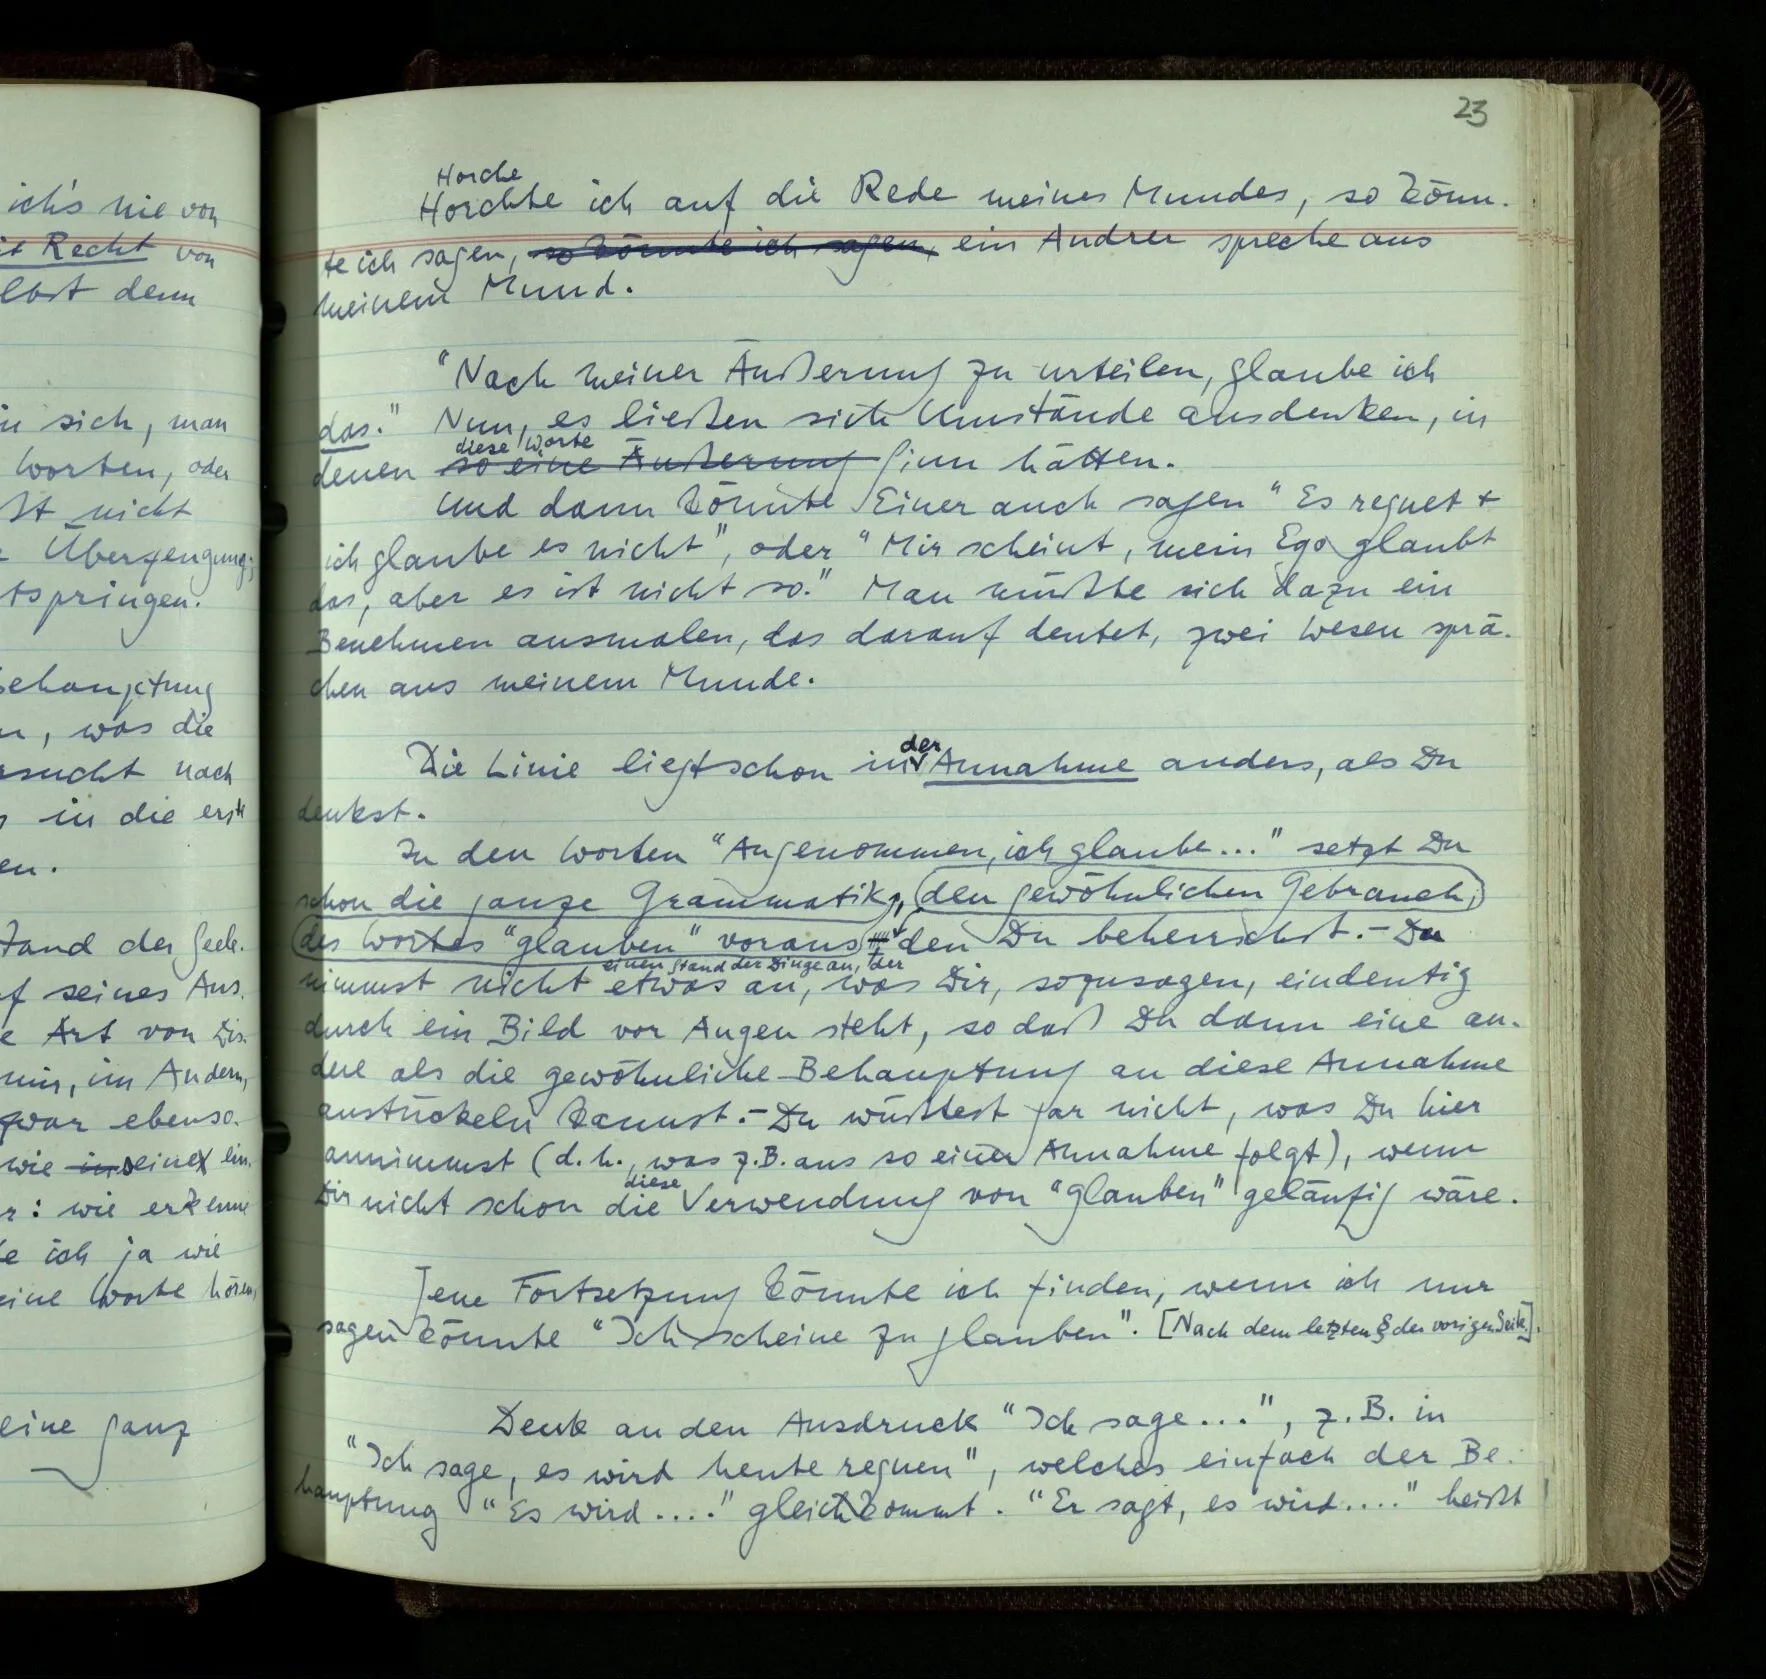 ich's nie von
it Recht von
elbst denn
in sich, man
Worten, oder
ßt nicht
Überzeugung;
tspringen.
Behauptung
n, was die
ersucht nach
in die erste
en.
stand der Seele.
f seines Aus-
e Art von Dis-
mir, im Andern,
zwar ebenso-
wie in seine ein-
r: wie erkenne
e ich ja wie
eine Worte hören,
eine ganz
23
Horche
Horchte ich auf die Rede meines Mundes, so könn-
te ich sagen, so könnte ich sagen, ein Andrer spreche aus
meinem Mund.
"Nach meiner Äußerung zu urteilen, glaube ich
das." Nun, es ließen sich Umstände ausdenken, in
diese Worte
denen so eine Äußerung Sinn hätten.
Und dann könnte Einer auch sagen "Es regnet +
ich glaube es nicht", oder "Mir scheint, mein Ego glaubt
das, aber es ist nicht so." Man müßte sich dazu ein
Benehmen ausmalen, das darauf deutet, zwei Wesen sprä-
chen aus meinem Munde.
der
Die Linie liegt schon in Annahme anders, als Du
denkst.
In den Worten "Angenommen, ich glaube..." setzt Du
schon die ganze Grammatik, den gewöhnlichen Gebrauch,
des Wortes "glauben" voraus den Du beherrschst. – Du
einen Stand der Dinge an, der
nimmst nicht etwas an, was Dir, sozusagen, eindeutig
durch ein Bild vor Augen steht, so daß Du dann eine an-
dere als die gewöhnliche Behauptung an diese Annahme
anstückeln kannst. – Du wüßtest gar nicht, was Du hier
annimmst (d.h., was z.B. aus so einer Annahme folgt), wenn
diese
Dir nicht schon die Verwendung von "glauben" geläufig wäre.
Jene Fortsetzung könnte ich finden, wenn ich nur
sagen könnte "Ich scheine zu glauben". [Nach dem letzten § der vorigen Seite].
Denk an den Ausdruck "Ich sage...", z.B. in
"Ich sage, es wird heute regnen", welches einfach der Be-
hauptung "Es wird...." gleichkommt. "Er sagt, es wird...." heißt